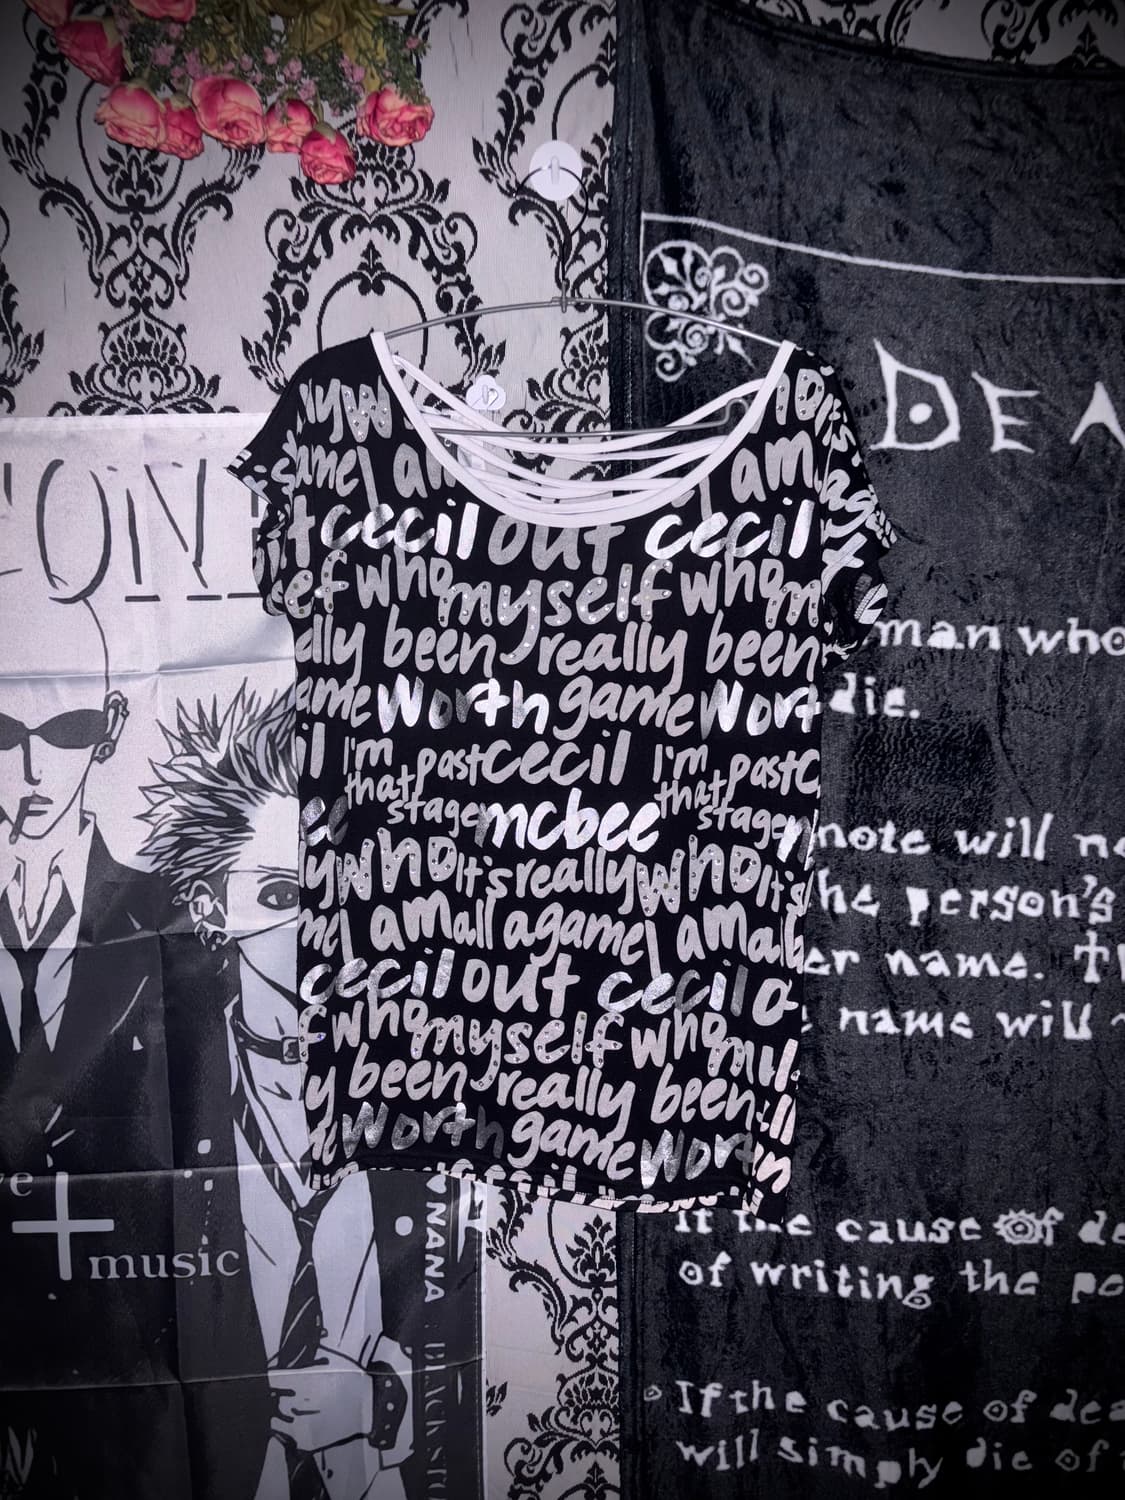 DEA
I am
am
cecil out cecil
who myself who
ally been really been
ame worth game wort
il I'm past cecil I'm past
that that
stage mcbee stage
who It's really who It's
I am all a game I am all
cecil out cecil
f who myself who
y been really been
worth game wort
cecil
man who
die.
note will
he person's
er name.
name will
If the cause of de
of writing the pe
If the cause of dea
will simply die of
music
NANA
BLACK STO